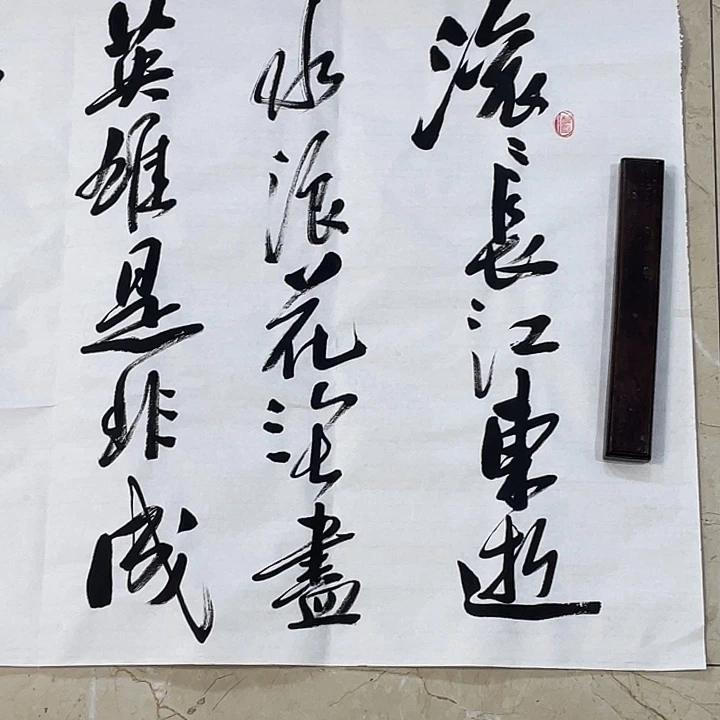 滚〻長江東逝
水浪花淘盡
英雄是非成